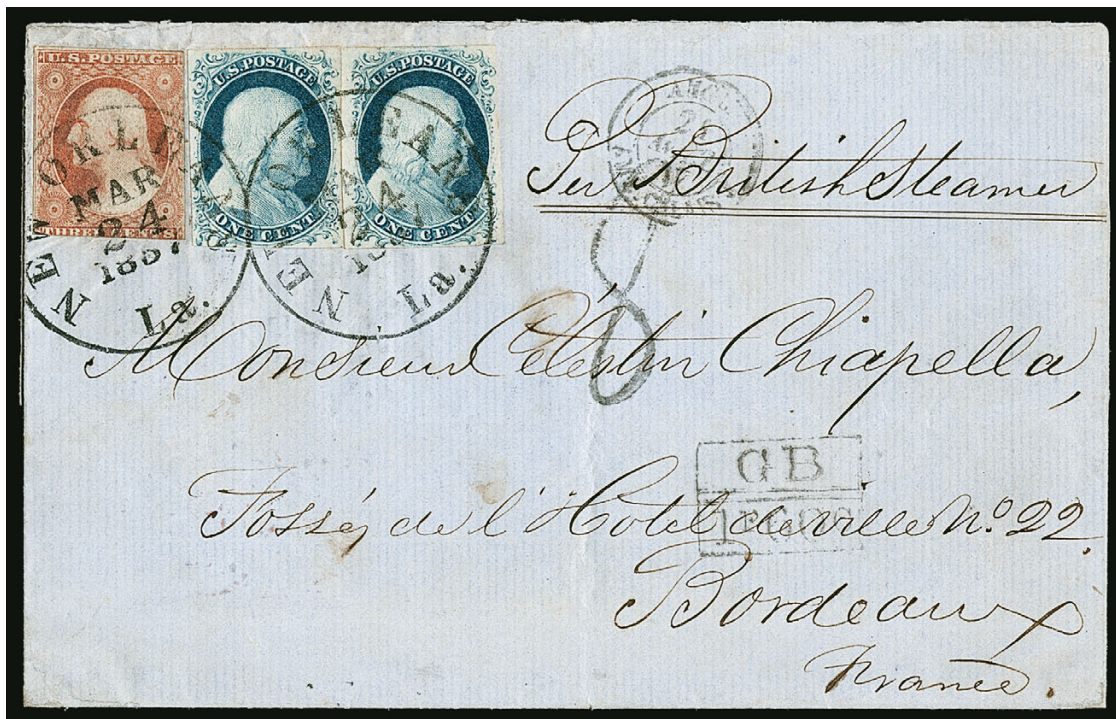 U.S. POSTAGE
THREE CENTS
U.S. POSTAGE
ONE CENT
U.S. POSTAGE
ONE CENT
NEW ORLEANS
MAR
24
1857
La.
NEW ORLEANS
MAR
24
La.
Per British Steamer
8
Monsieur Célestin Chiapella,
GB
1F60c
Fossés de l'Hotel de ville No. 22.
Bordeaux
France.